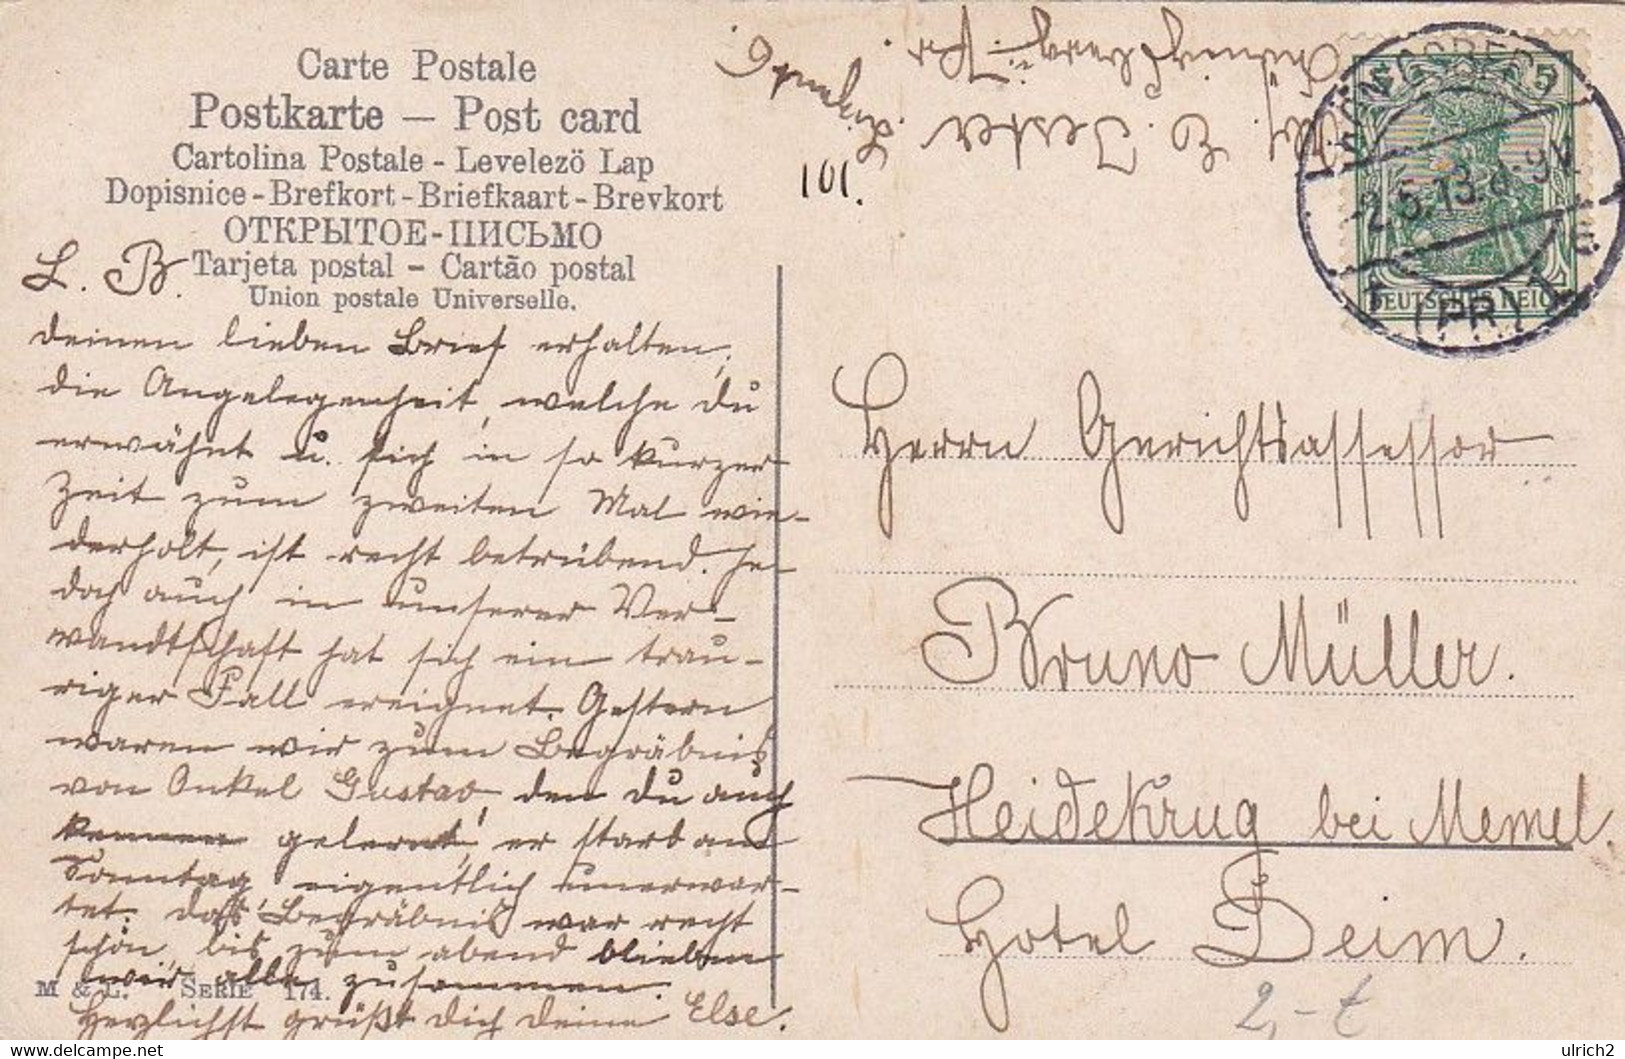 Carte Postale
Postkarte — Post card
Cartolina Postale - Levelezö Lap
Dopisnice - Brefkort - Briefkaart - Brevkort
ОТКРЫТОЕ - ПИСЬМО
Tarjeta postal - Cartão postal
Union postale Universelle.
L. B.
deinen lieben Brief erhalten,
die Angelegenheit, welche du
erwähnt u. sich in so kurzer
Zeit zum zweiten Mal wie-
derholt, ist recht betrübend. Je
doch auch in unserer Ver-
wandtschaft hat sich ein trau-
riger Fall ereignet. Gestern
waren wir zum Begräbnis
von Onkel Gustav, den du auch
kennen gelernt, er starb am
Sonntag eigentlich unerwar-
tet. das Begräbnis war recht
schön, bis zum abend blieben
wir alle zusammen.
Herzlichst grüßt dich deine Else.
M & L. SERIE 174.
101.
E. Jester
KÖNIGSBERG
-2.5.13.8-9V.
(PR) 1
5
DEUTSCHES REICH
Herrn Gerichtsassessor
Bruno Müller.
Heidekrug bei Memel.
Hotel Deim.
2,- t
ulrich2